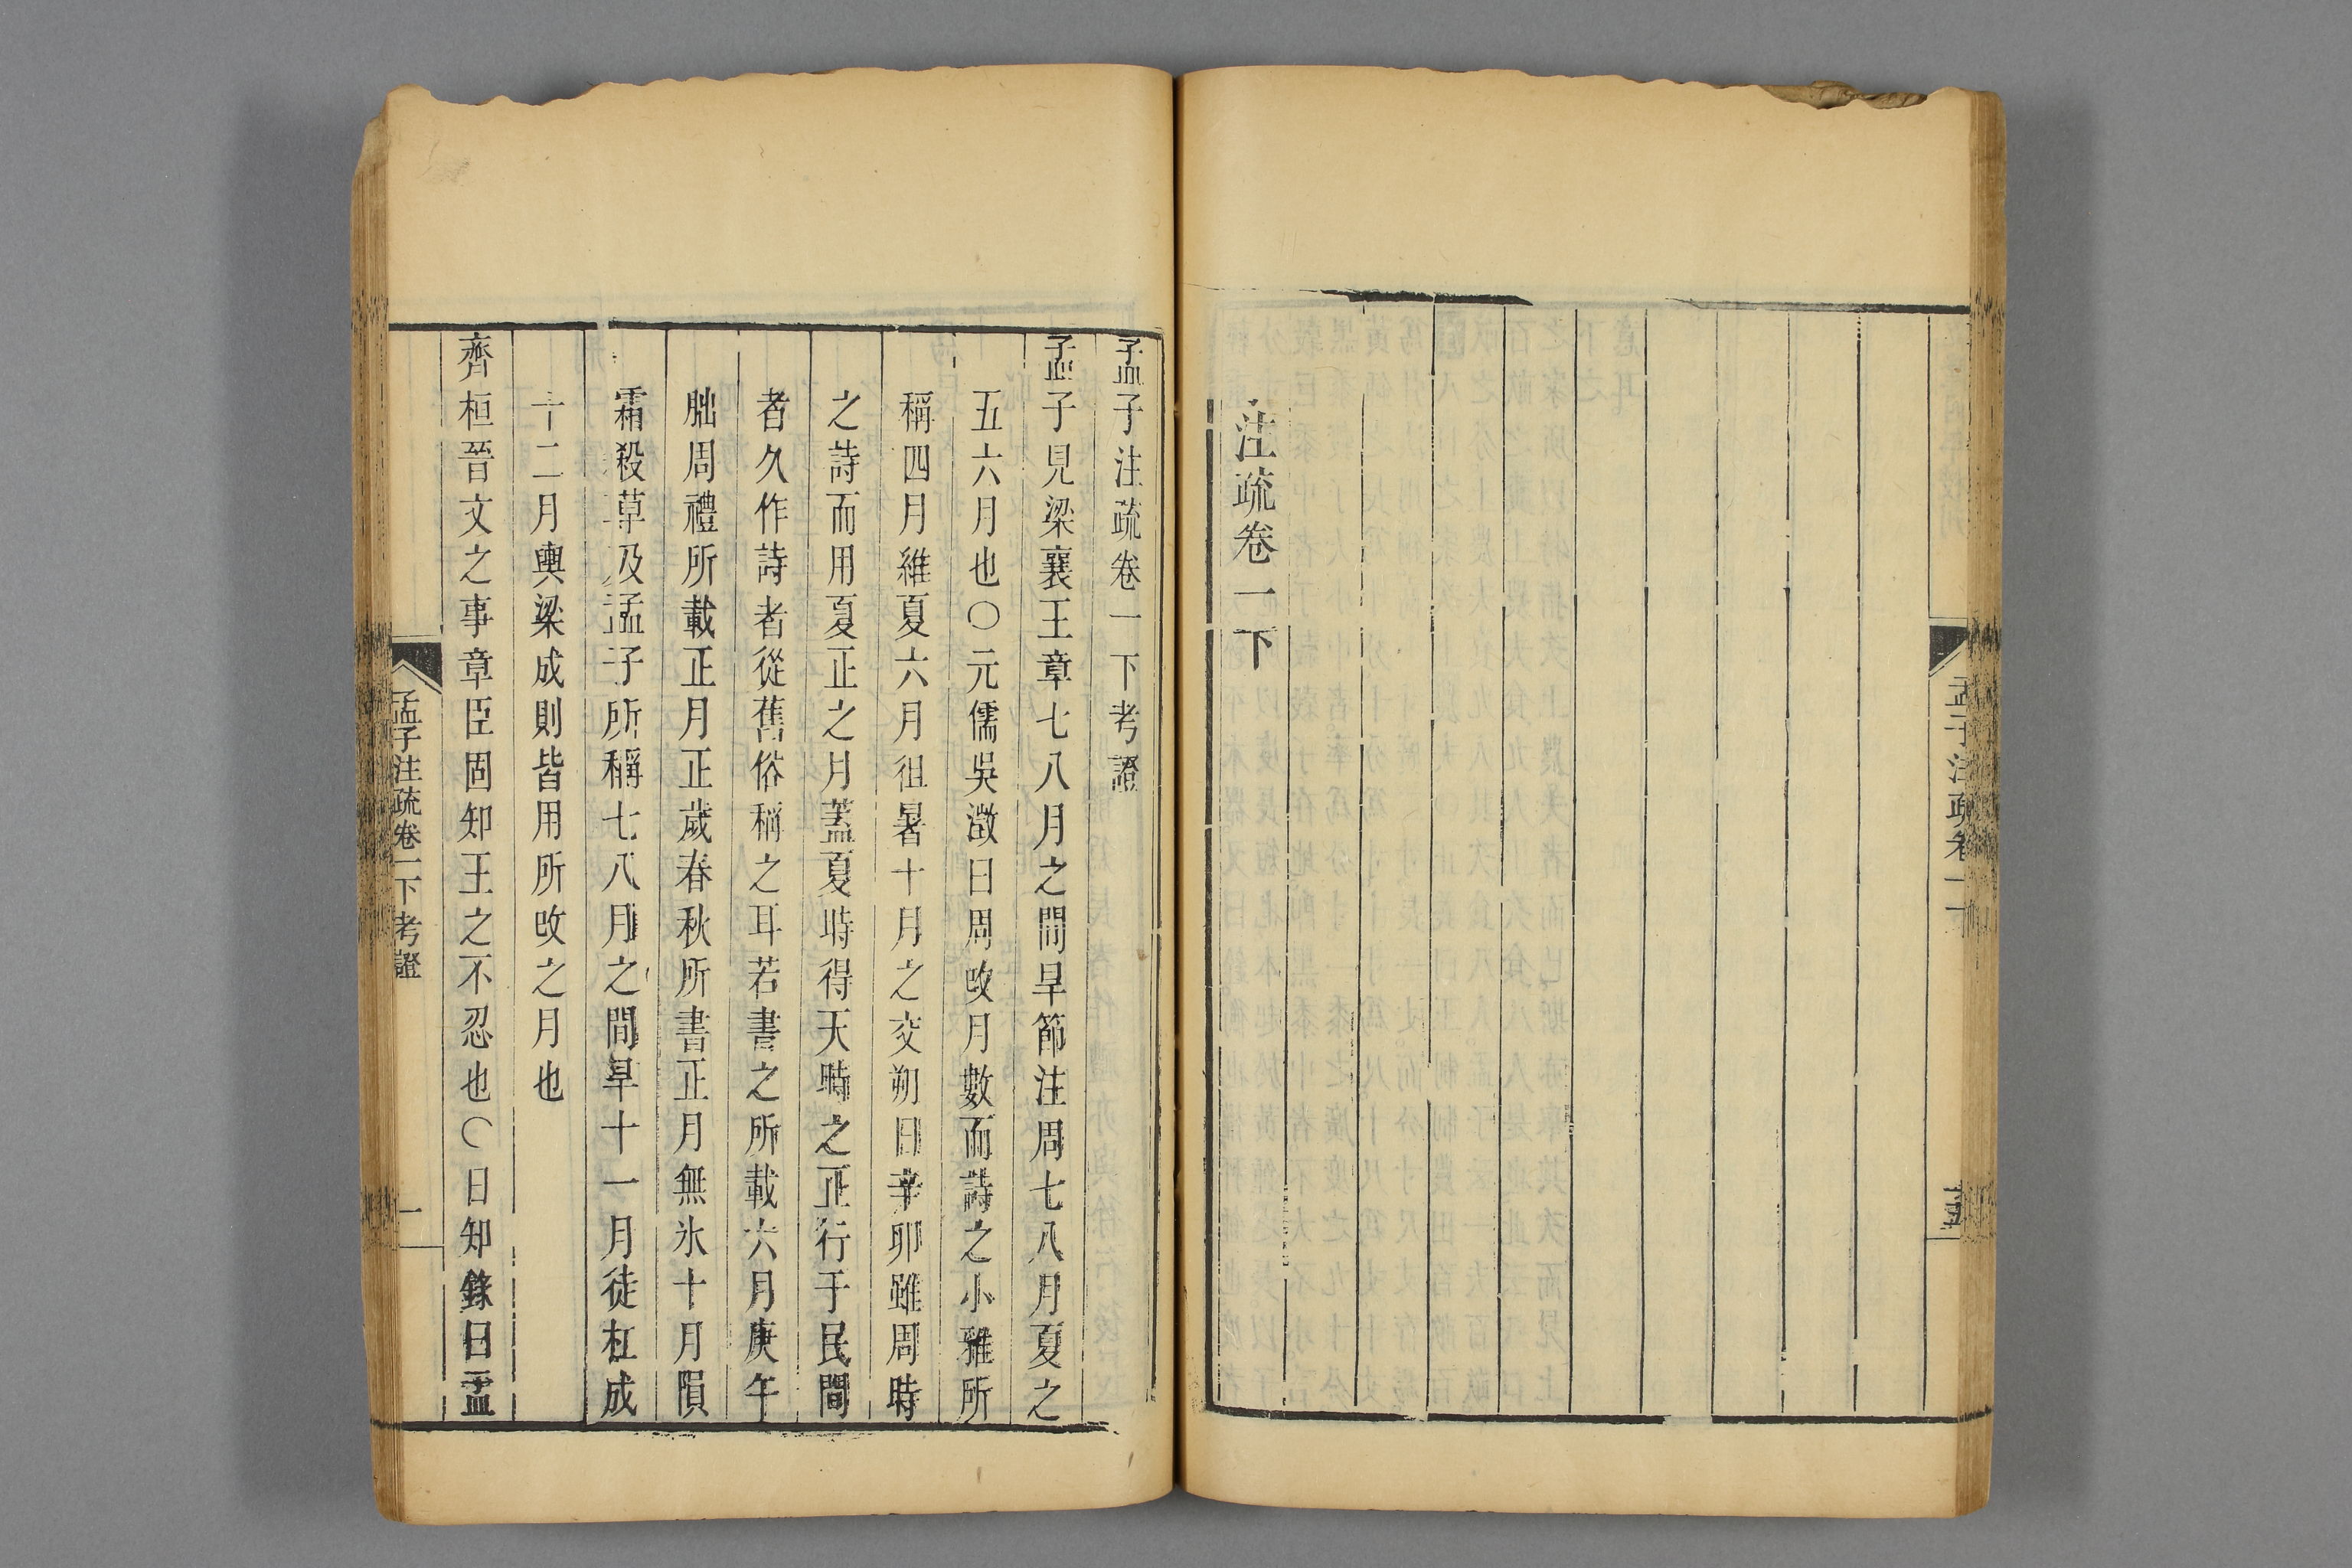 孟子注疏卷一
注疏卷一下
孟子注疏卷一下考證
孟子見梁襄王章七八月之間旱節注周七八月夏之
五六月也〇元儒吳澂曰周改月數而詩之小雅所
稱四月維夏六月徂暑十月之交朔日辛卯雖周時
之詩而用夏正之月蓋夏時得天時之正行于民間
者久作詩者從舊俗稱之耳若書之所載六月庚午
朏周禮所載正月正歲春秋所書正月無氷十月隕
霜殺草及孟子所稱七八月之間旱十一月徒杠成
十二月輿梁成則皆用所改之月也
齊桓晉文之事章臣固知王之不忍也〇日知錄曰孟
孟子注疏卷一下考證
一